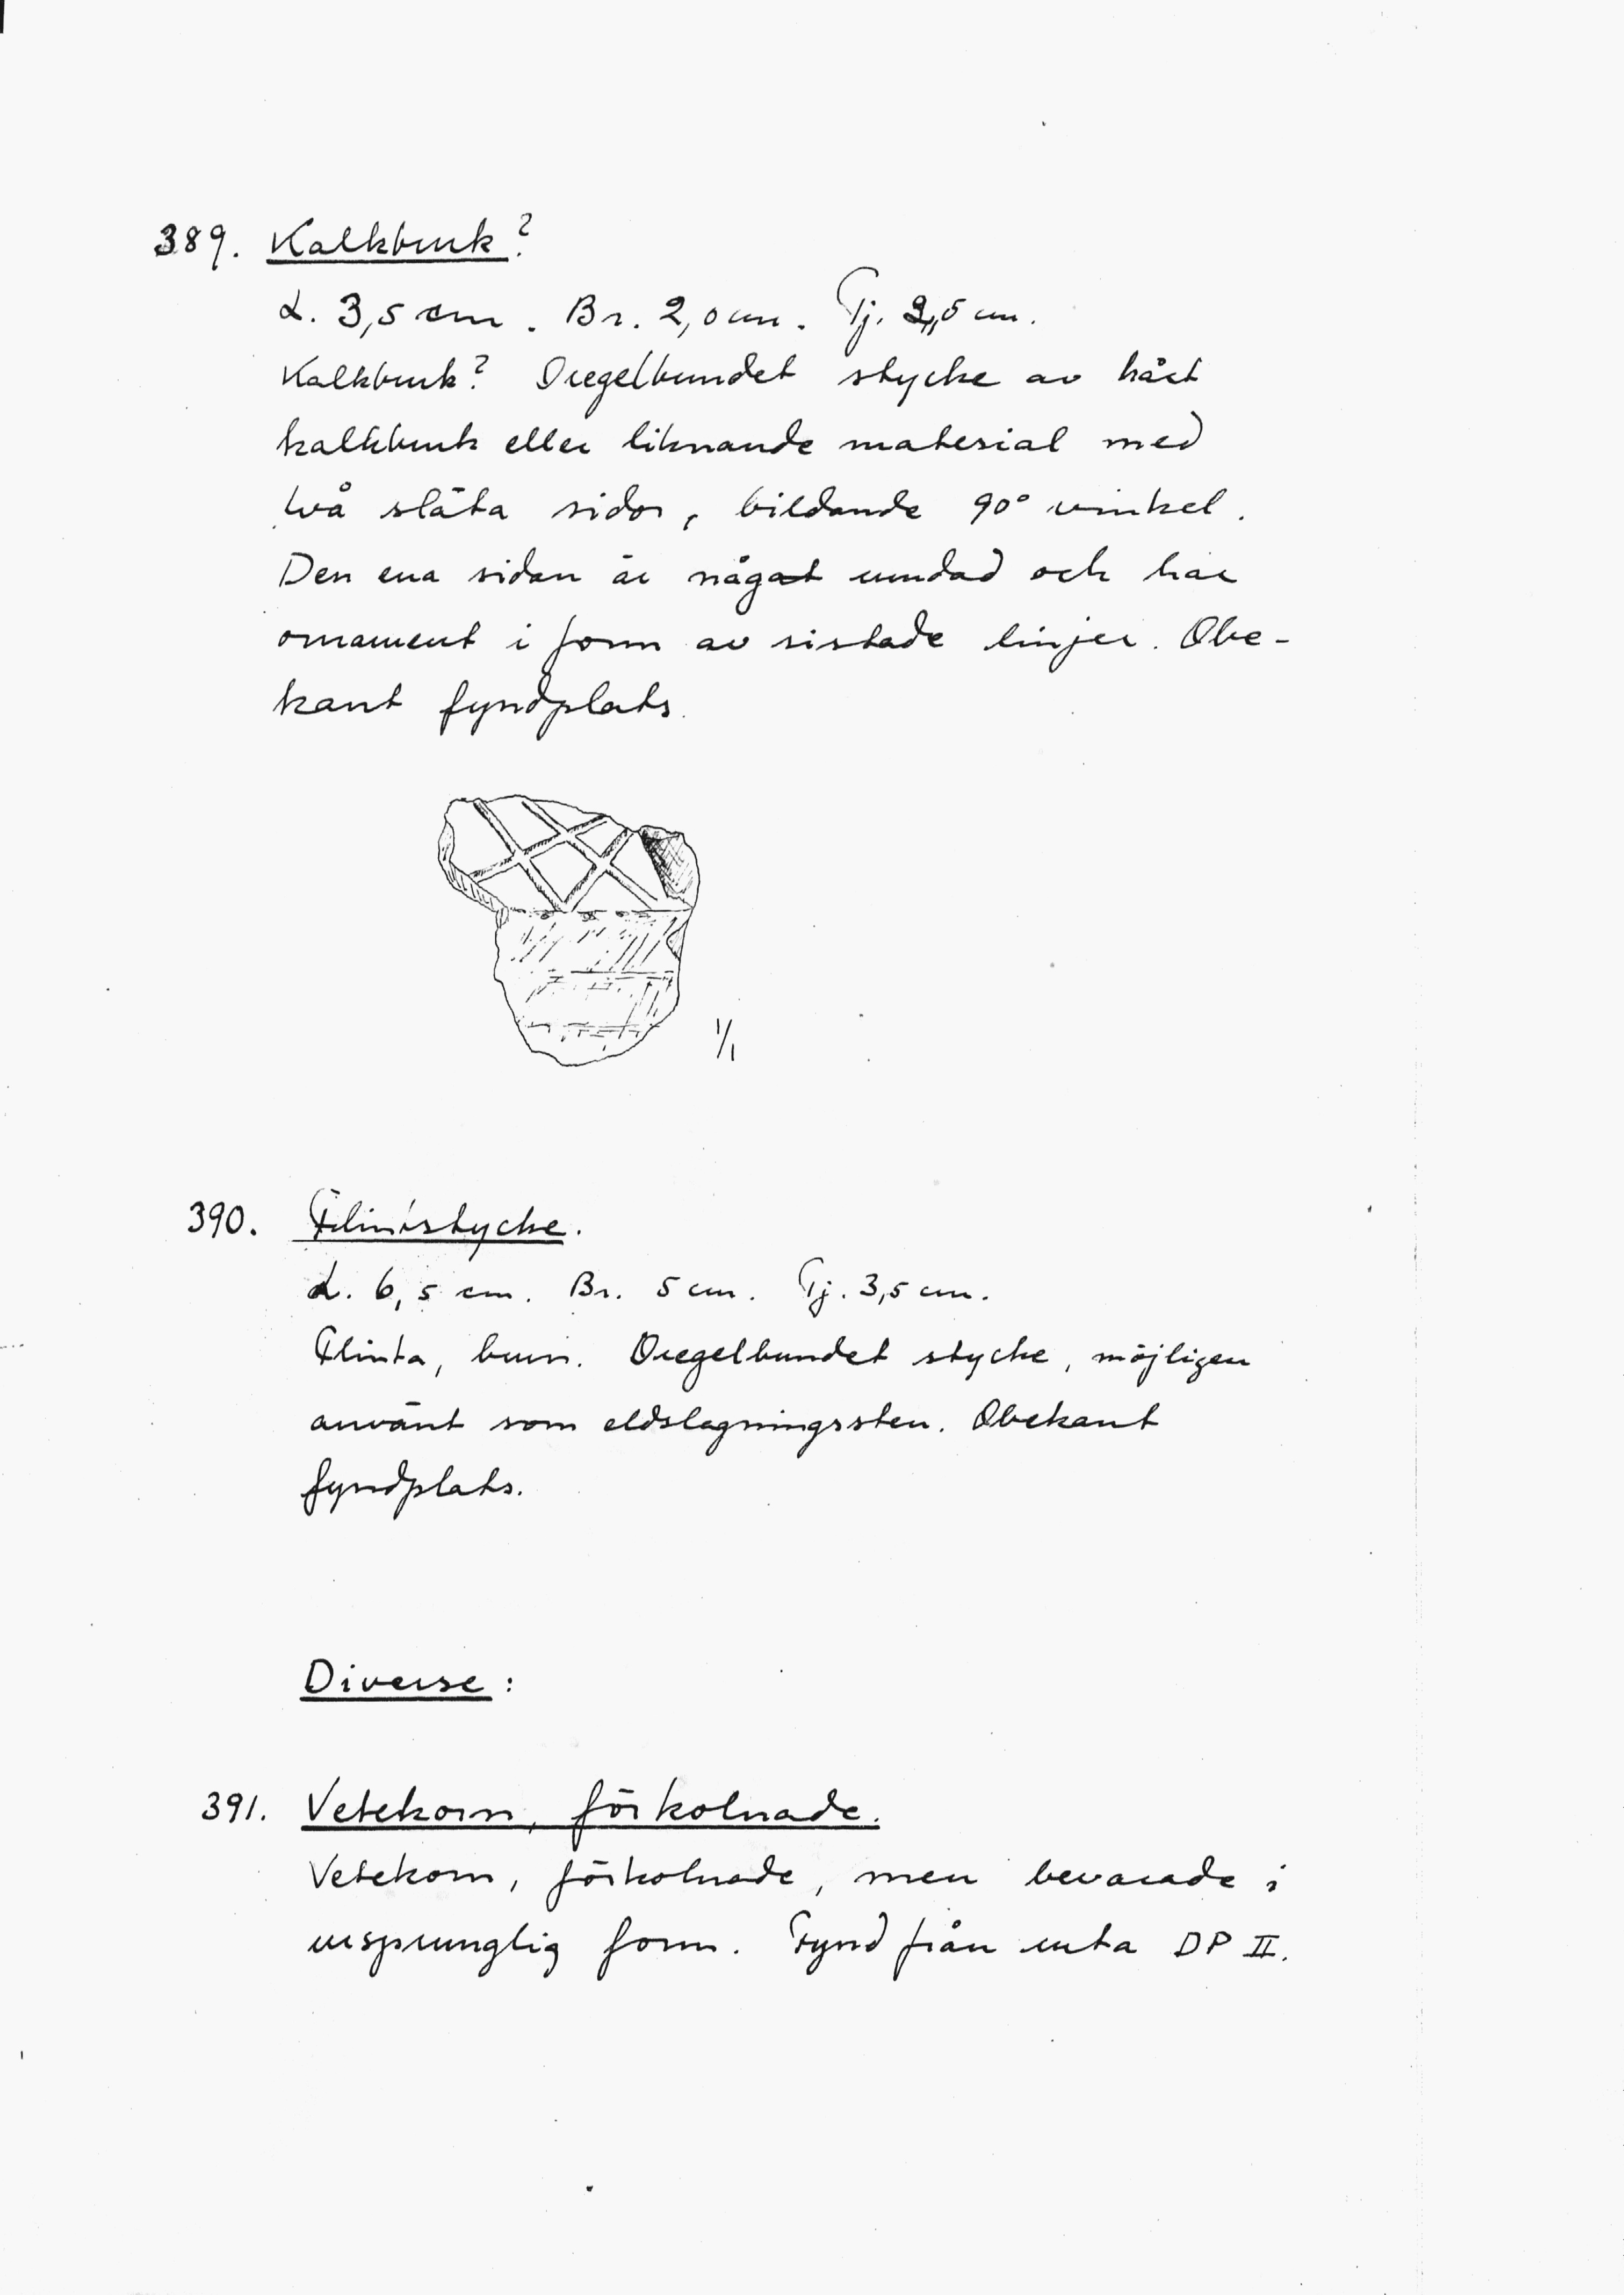 389. Kalkbruk?
L. 3,5 cm. Br. 2,0 cm. Tj. 2,5 cm.
Kalkbruk? Oregelbundet stycke av hårt
kalkbruk eller liknande material med
två släta sidor, bildande 90° vinkel.
Den ena sidan är något rundad och har
ornament i form av ristade linjer. Obe-
kant fyndplats.
1/1
390. Flintstycke.
L. 6,5 cm. Br. 5 cm. Tj. 3,5 cm.
Flinta, brun. Oregelbundet stycke, möjligen
använt som eldslagningssten. Obekant
fyndplats.
Diverse:
391. Vetekorn, förkolnade.
Vetekorn, förkolnade, men bevarade i
ursprunglig form. Fynd från ruta DP II.